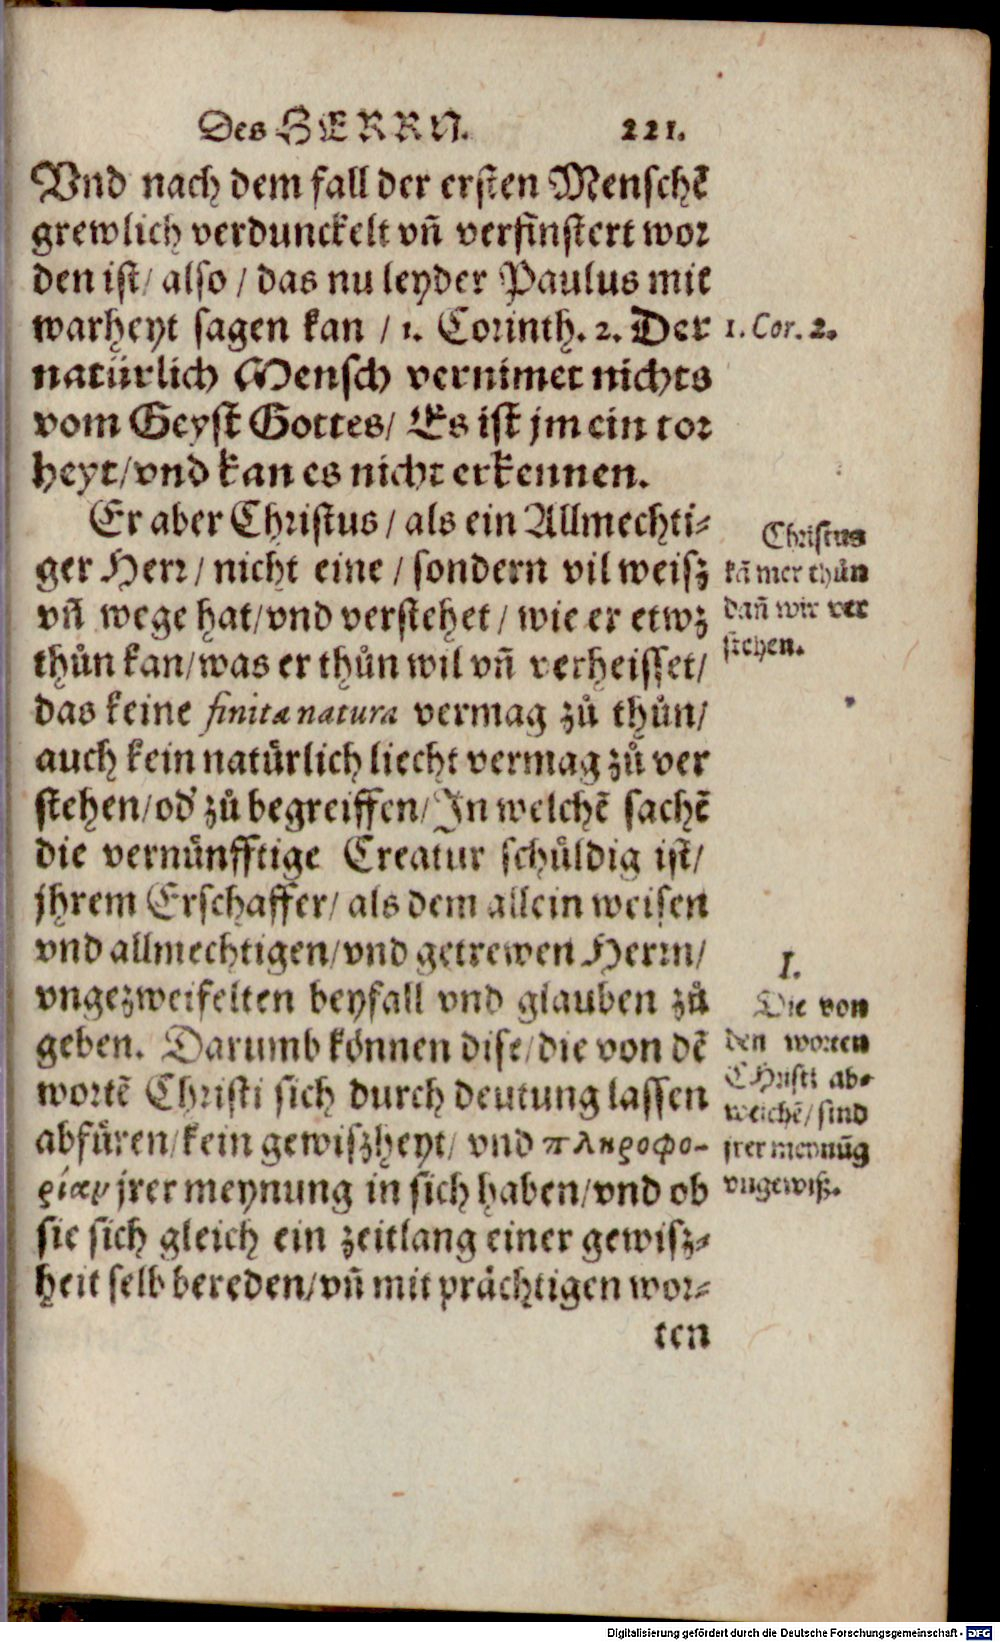 Des HERRN. 221.
Vnd nach dem fall der ersten Menschẽ
grewlich verdunckelt vñ verfinstert wor
den ist/ also / das nu leyder Paulus mit
warheyt sagen kan / 1. Corinth. 2. Der
natürlich Mensch vernimet nichts
vom Geyst Gottes/ Es ist jm ein tor
heyt/vnd kan es nicht erkennen.
1. Cor. 2.
Er aber Christus / als ein Allmechti-
ger Herr / nicht eine / sondern vil weisz
vñ wege hat/vnd verstehet / wie er etwz
thůn kan/was er thůn wil vñ verheisset/
das keine finita natura vermag zů thůn/
auch kein natůrlich liecht vermag zů ver
stehen/od' zů begreiffen/In welchẽ sachẽ
die vernůnfftige Creatur schůldig ist/
jhrem Erschaffer/ als dem allein weisen
vnd allmechtigen/vnd getrewen Herrn/
vngezweifelten beyfall vnd glauben zů
geben. Darumb können dise/die von dẽ
wortẽ Christi sich durch deutung lassen
abfüren/kein gewiszheyt/ vnd πληροφο-
ρίαν jrer meynung in sich haben/vnd ob
sie sich gleich ein zeitlang einer gewisz-
heit selb bereden/vñ mit prächtigen wor-
ten
Christus
kã mer thůn
dañ wir ver
stehen.
I.
Die von
den worten
CHristi ab-
weichẽ/ sind
jrer meynũg
vngewiß.
Digitalisierung gefördert durch die Deutsche Forschungsgemeinschaft - DFG